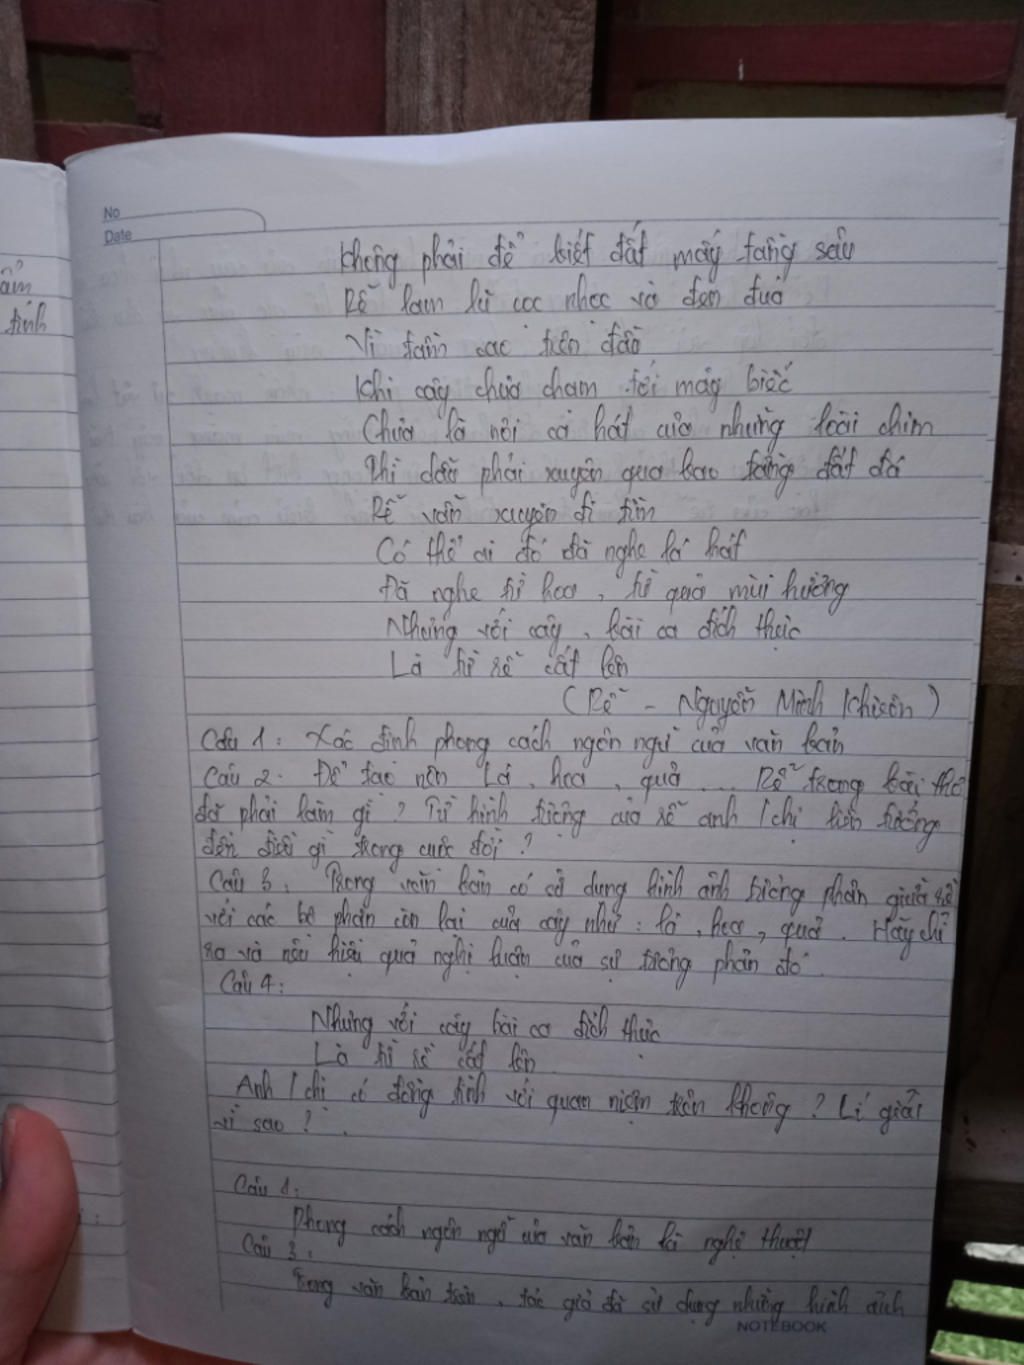 ẩm
tính
No
Date
Không phải để biết đất mấy tầng sâu
Rễ lam lũ cọc nhọc và đen đuả
Vì tầm cao trên đầu
Khi cây chưa chạm tới mây biếc
Chưa là nơi ca hát của những loài chim
Thì dẫu phải xuyên qua bao tầng đất đá
Rễ vẫn xuyên đi tìm
Có thể ai đó đã nghe lá hát
Đã nghe từ hoa, từ quả mùi hương
Nhưng với cây, bài ca đích thực
Là từ rễ cất lên
(Rễ - Nguyễn Minh Khiêm)
Câu 1: Xác định phong cách ngôn ngữ của văn bản
Câu 2. Để tạo nên lá, hoa, quả ... Rễ trong bài thơ
đã phải làm gì? Từ hình tượng của rễ anh / chị liên tưởng
đến điều gì trong cuộc đời?
Câu 3. Trong văn bản có sử dụng hình ảnh tương phản giữa rễ
với các bộ phận còn lại của cây như: lá, hoa, quả. Hãy chỉ
ra và nêu hiệu quả nghệ thuận của sự tương phản đó.
Câu 4:
Nhưng với cây bài ca đích thực
Là từ rễ cất lên
Anh / chị có đồng tình với quan niệm trên không? Lí giải
vì sao?
Câu 1:
Phong cách ngôn ngữ của văn bản là nghệ thuật
Câu 3:
Trong văn bản trên, tác giả đã sử dụng những hình ảnh
NOTEBOOK